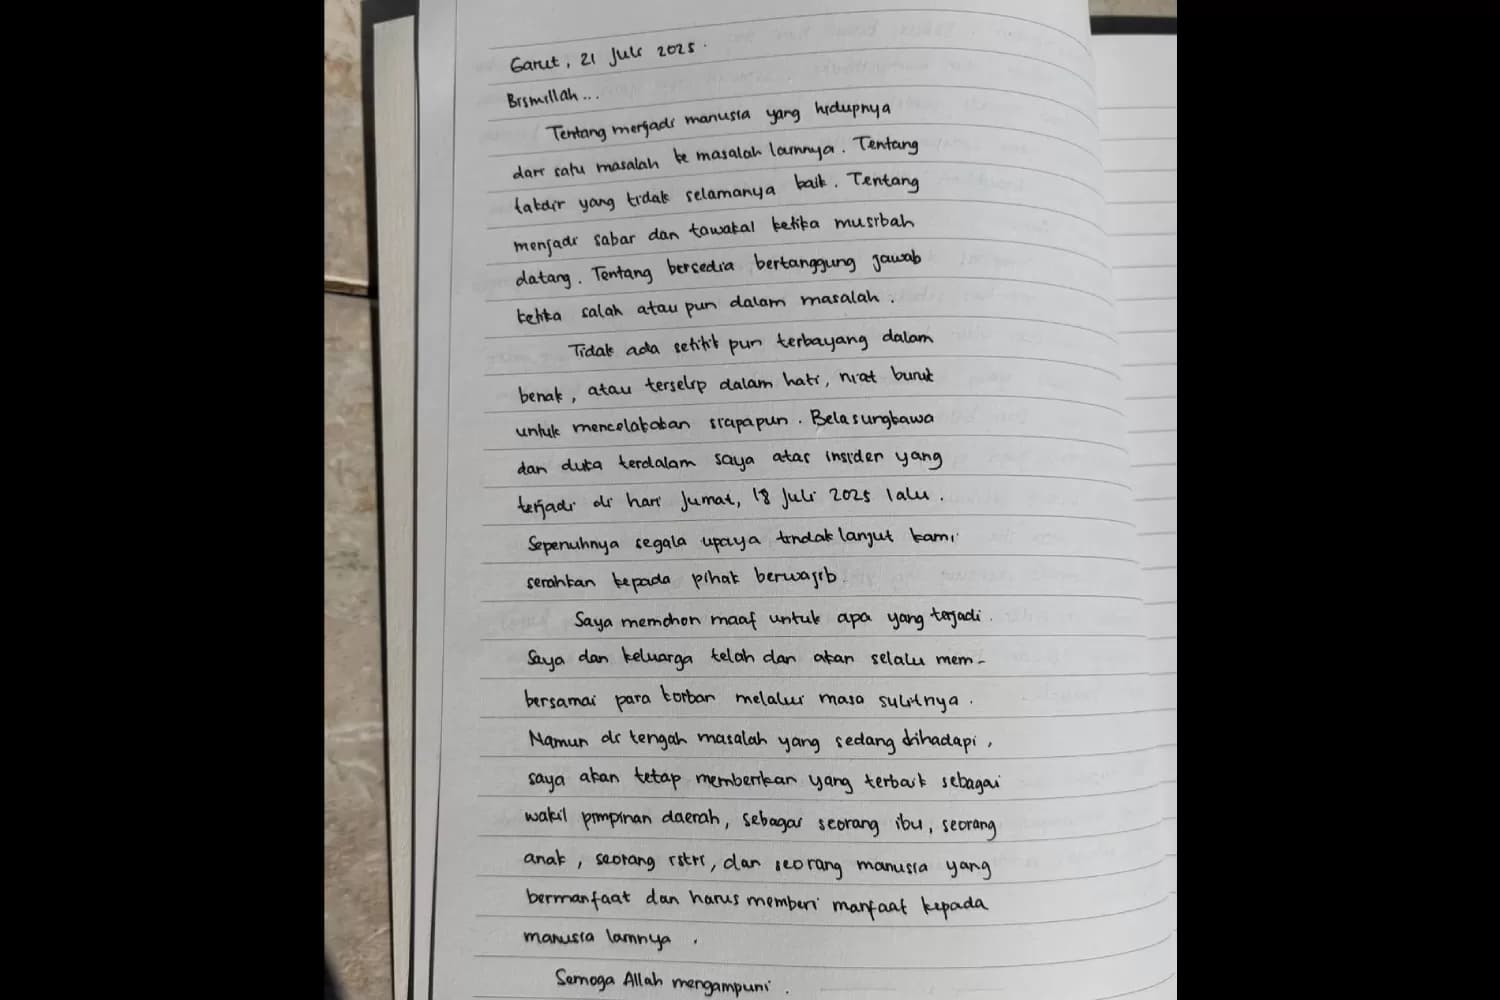 Garut, 21 Juli 2025.
Bismillah...
Tentang menjadi manusia yang hidupnya
dari satu masalah ke masalah lainnya. Tentang
takdir yang tidak selamanya baik. Tentang
menjadi sabar dan tawakal ketika musibah
datang. Tentang bersedia bertanggung jawab
ketika salah atau pun dalam masalah.
Tidak ada setitik pun terbayang dalam
benak, atau terselip dalam hati, niat buruk
untuk mencelakakan siapapun. Belasungkawa
dan duka terdalam saya atas insiden yang
terjadi di hari Jumat, 18 Juli 2025 lalu.
Sepenuhnya segala upaya tindak lanjut kami
serahkan kepada pihak berwajib.
Saya memohon maaf untuk apa yang terjadi.
Saya dan keluarga telah dan akan selalu mem-
bersamai para korban melalui masa sulitnya.
Namun di tengah masalah yang sedang dihadapi,
saya akan tetap memberikan yang terbaik sebagai
wakil pimpinan daerah, sebagai seorang ibu, seorang
anak, seorang istri, dan seorang manusia yang
bermanfaat dan harus memberi manfaat kepada
manusia lainnya.
Semoga Allah mengampuni.